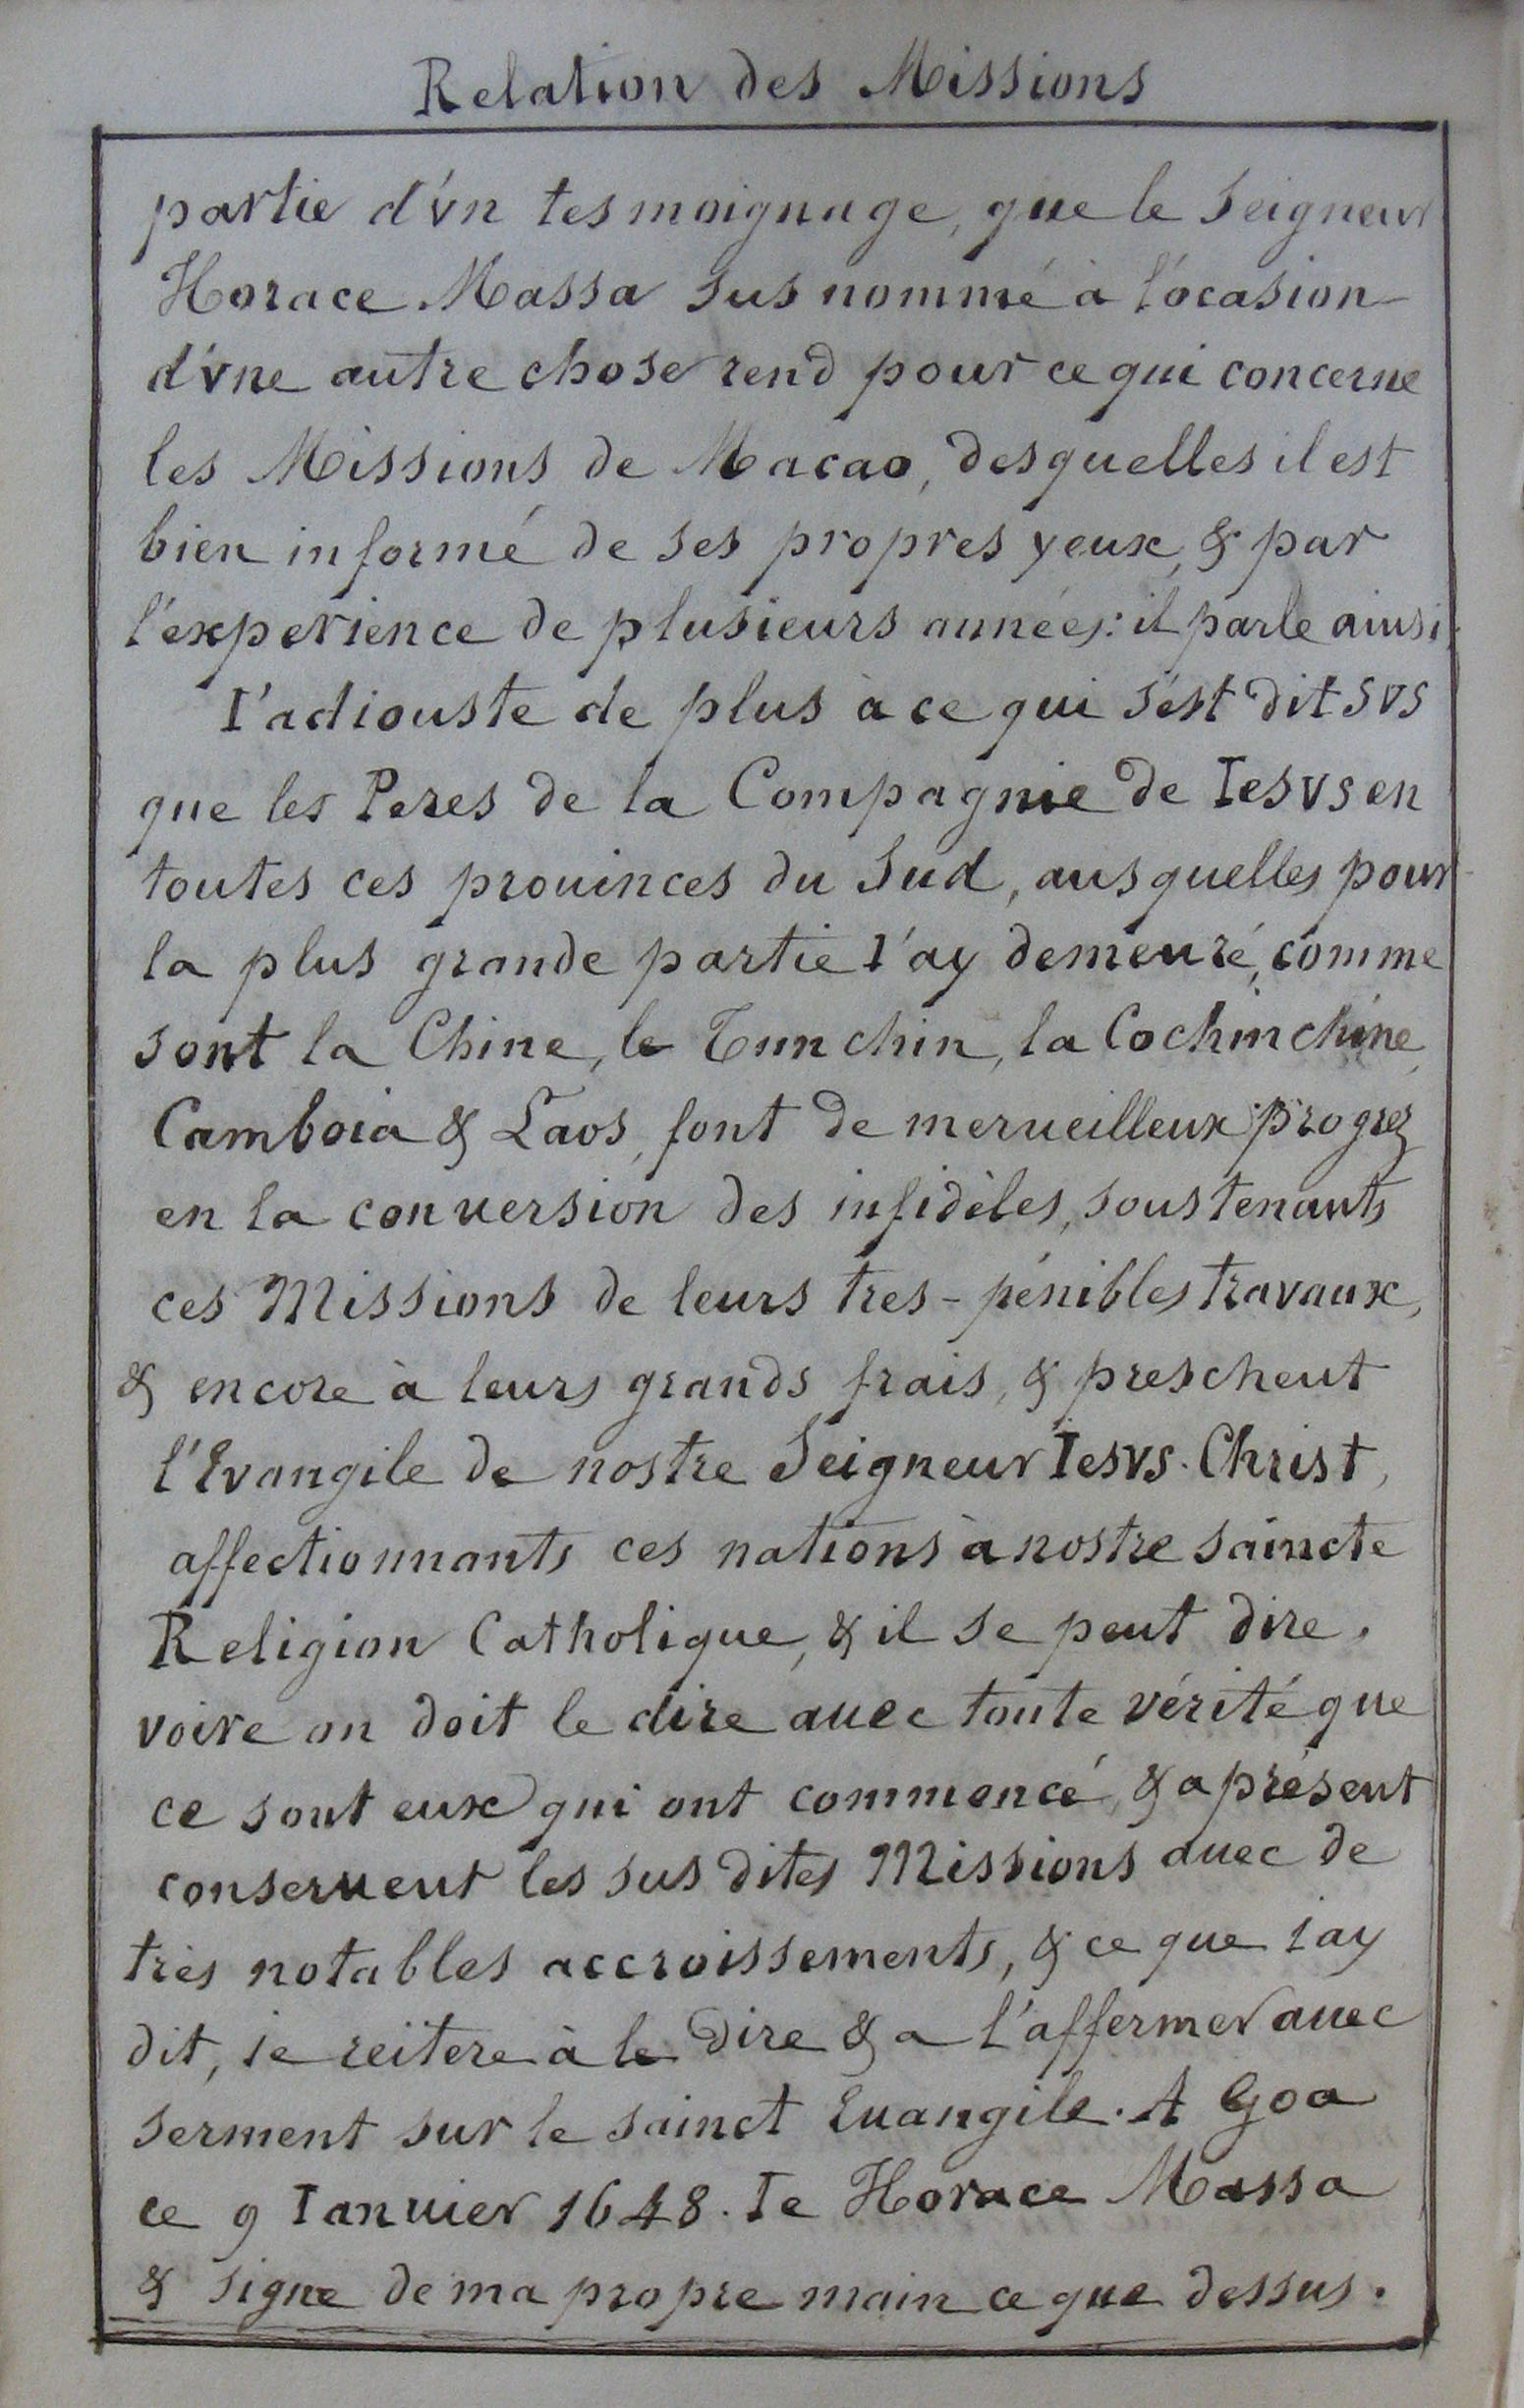 Relation des Missions
partie d'vn tesmoignage, que le Seigneur
Horace Massa sus nommé à l'ocasion
d'vne autre chose rend pour ce qui concerne
les Missions de Macao, desquelles il est
bien informé de ses propres yeux, & par
l'experience de plusieurs années: il parle ainsi.
I'adiouste de plus à ce qui s'est dit svs
que les Peres de la Compagnie de Iesvs en
toutes ces prouinces du Sud, ausquelles pour
la plus grande partie i'ay demeuré, comme
sont la Chine, le Tunchin, la Cochinchine,
Camboia & Laos, font de merueilleux progrez
en la conuersion des infidèles, soustenants
ces Missions de leurs tres-pénibles travaux,
& encore à leurs grands frais, & preschent
l'Evangile de nostre Seigneur Iesvs-Christ,
affectionnants ces nations à nostre saincte
Religion Catholique, & il se peut dire,
voire on doit le dire auec toute vérité que
ce sont eux qui ont commencé, & a présent
conseruent les sus dites Missions auec de
très notables accroissements, & ce que i'ay
dit, ie reitere à le dire & a l'affermer auec
serment sur le sainct Euangile. A Goa
ce 9 Ianuier 1648. Ie Horace Massa
& signe de ma propre main ce que dessus.